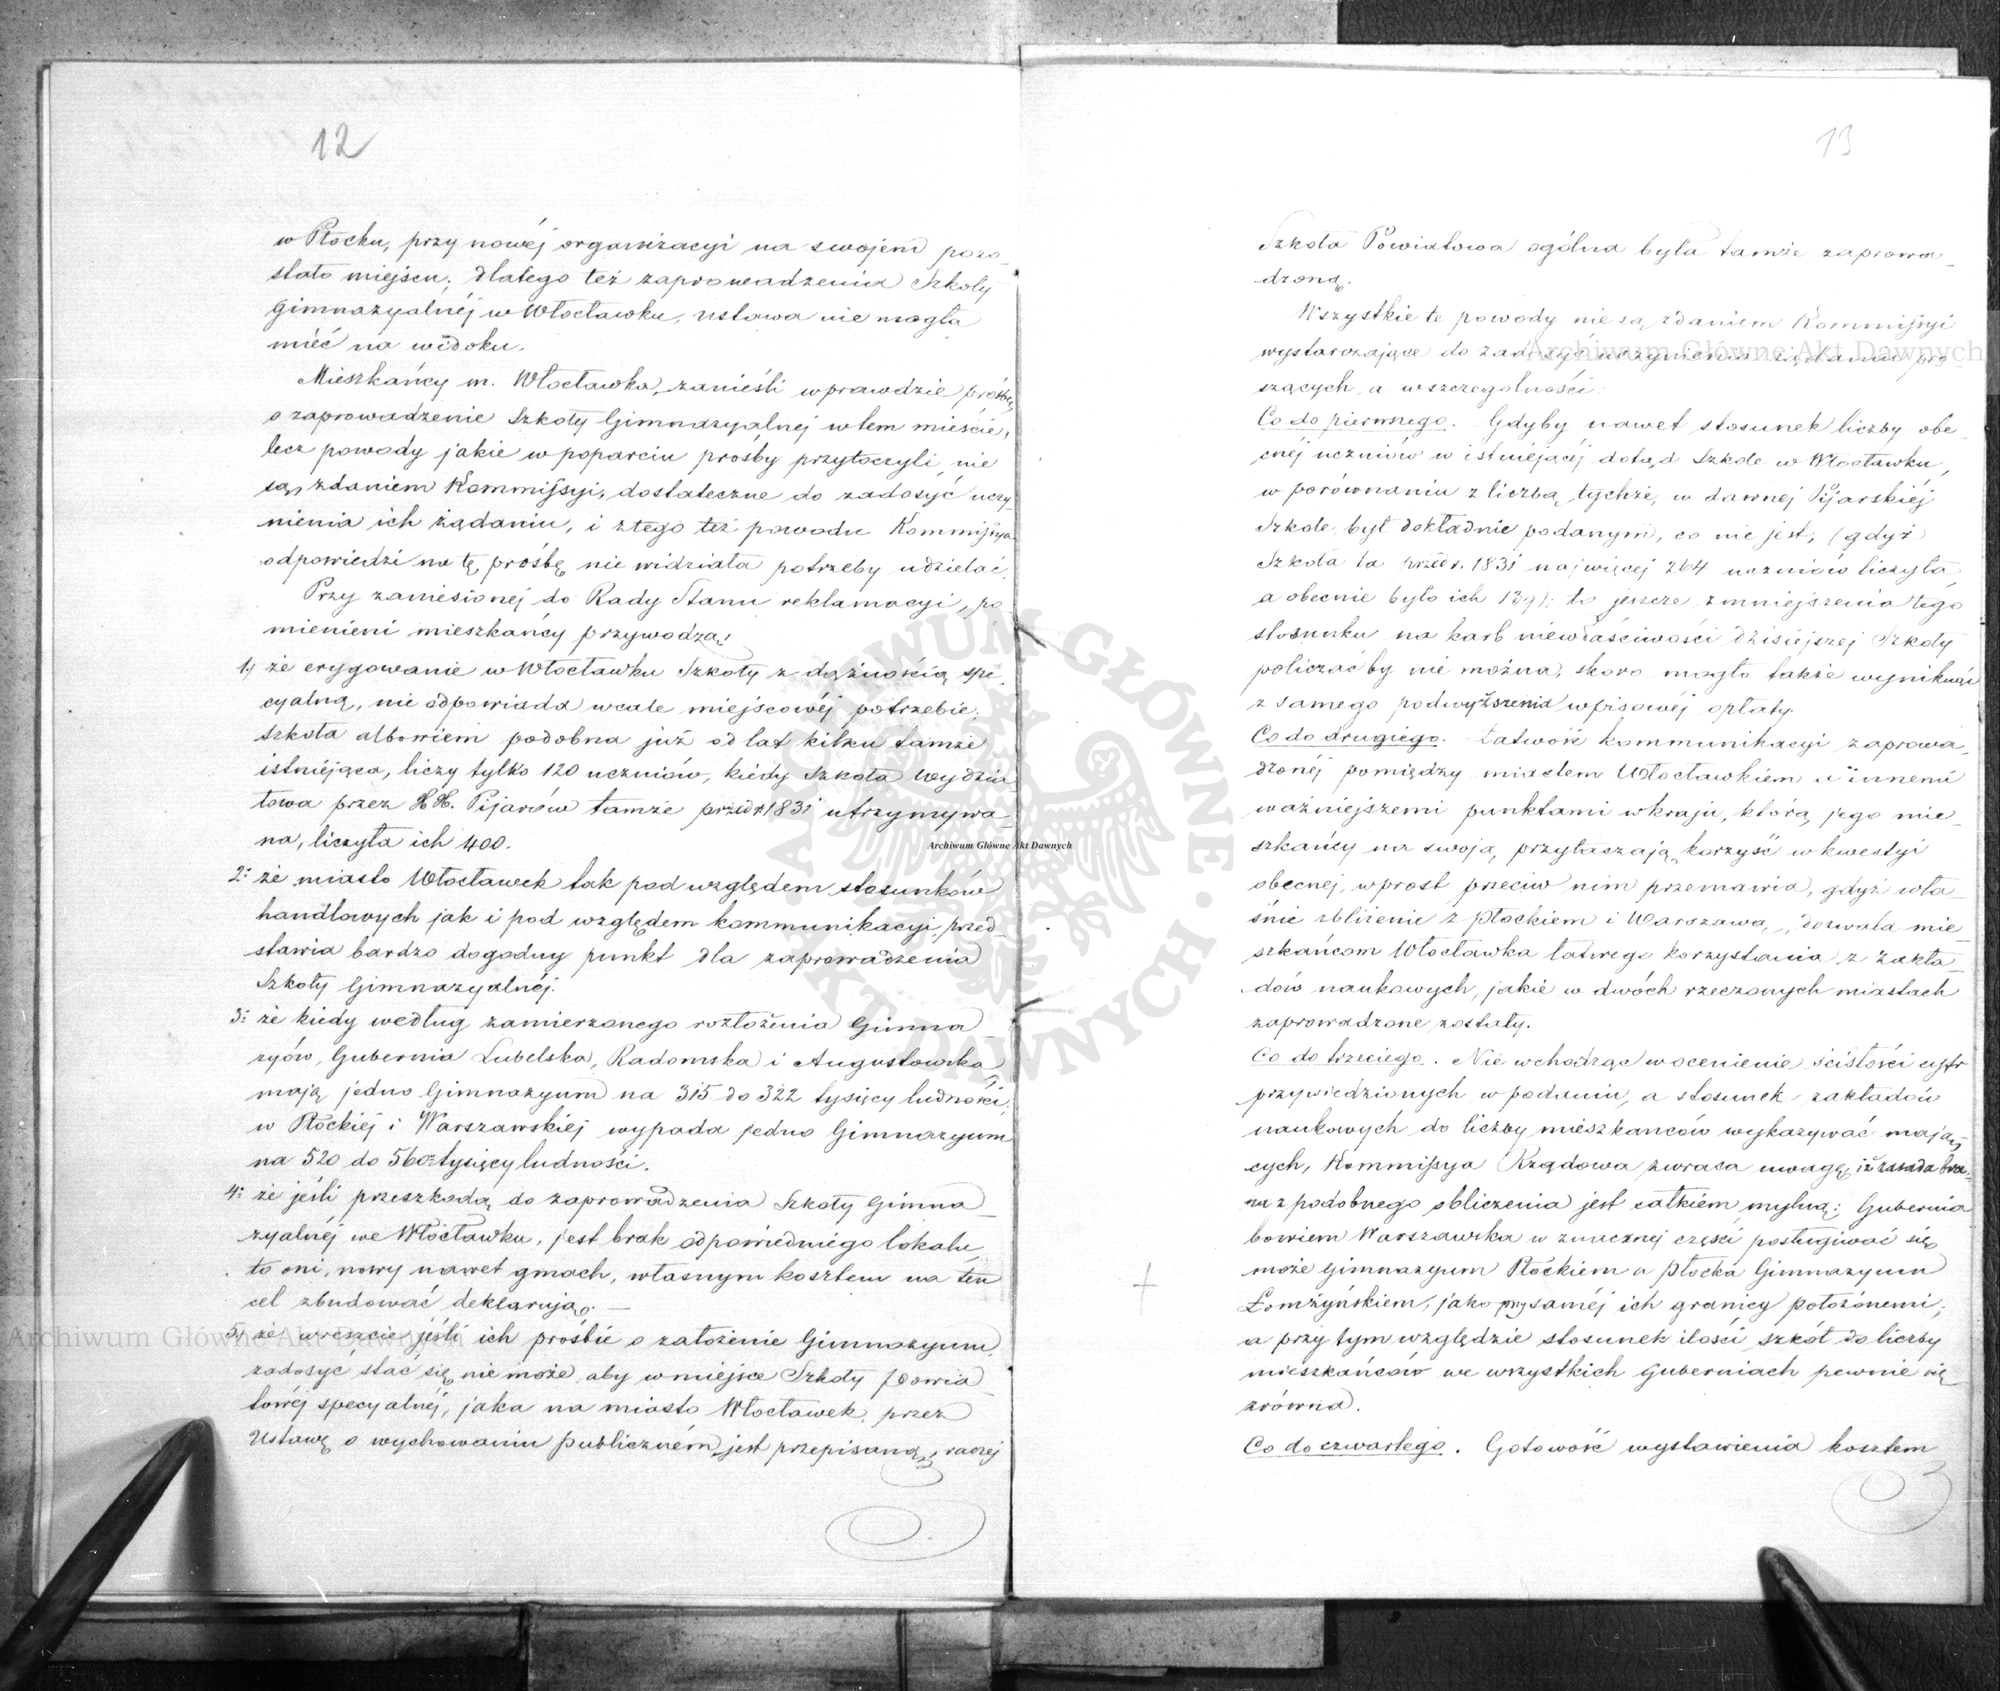 12
w Płocku, przy nowéj organizacyi na swojem pozo-
stało miejscu; dlatego też zaprowadzenia Szkoły
Gimnazyalnéj w Włocławku, ustawa nie mogła
mieć na widoku.
Mieszkańcy m. Włocławka, zanieśli wprawdzie prośbę
o zaprowadzenie Szkoły Gimnazyalnej w tem mieście,
lecz powody jakie w poparciu prośby przytoczyli, nie
są, zdaniem Kommissyi, dostateczne do zadosyć uczy-
nienia ich żądaniu, i z tego też powodu Kommissya
odpowiedzi na tę prośbę nie widziała potrzeby udzielać.
Przy zaniesionej do Rady Stanu reklamacyi, po-
mienieni mieszkańcy przywodzą:
1; że erygowanie w Włocławku Szkoły z dążnością spe-
cyalną, nie odpowiada wcale miejscowéj potrzebie;
szkoła albowiem podobna już od lat kilku tamże
istniejąca, liczy tylko 120 uczniów, kiedy Szkoła Wydzia-
łowa przez XX. Pijarów tamże przed r. 1831 utrzymywa-
na, liczyła ich 400.
2: że miasto Włocławek tak pod względem stosunków
handlowych jak i pod względem kommunikacyi, przed-
stawia bardzo dogodny punkt dla zaprowadzenia
Szkoły Gimnazyalnéj.
3: że kiedy według zamierzonego rozłożenia Gimna-
zyów, Gubernia Lubelska, Radomska i Augustowska
mają jedno Gimnazyum na 315 do 322 tysięcy ludności,
w Płockiej i Warszawskiej wypada jedno Gimnazyum
na 520 do 560 tysięcy ludności.
4: że jeśli przeszkodą do zaprowadzenia Szkoły Gimna-
zyalnéj we Włocławku, jest brak odpowiedniego lokalu,
to oni, nowy nawet gmach, własnym kosztem na ten
cel zbudować deklarują. —
5; że wreszcie jeśli ich prośbie o założenie Gimnazyum
zadosyć stać się nie może, aby w miejsce Szkoły Powia-
towéj specyalnéj, jaka na miasto Włocławek, przez
Ustawę o wychowaniu publiczném jest przepisaną, raczej
13
Szkoła Powiatowa ogólna była tamże zaprowa-
dzoną.
Wszystkie te powody nie są zdaniem Kommissyi
wystarczające do zadosyć uczynienia żądaniu pro-
szących, a w szczególności:
Co do pierwszego. Gdyby nawet stosunek liczby obe-
cnéj uczniów w istniejącéj dotąd Szkole w Włocławku,
w porównaniu z liczbą tychże, w dawnej Pijarskiéj
Szkole, był dokładnie podanym, co nie jest, (gdyż
Szkoła ta przed r. 1831 najwięcej 264 uczniów liczyła,
a obecnie było ich 139); to jeszcze zmniejszenia tego
stosunku na karb niewłaściwości dzisiejszej Szkoły
policzać by nie można, skoro mogło także wyniknąć
z samego podwyższenia wpisowéj opłaty.
Co do drugiego. Łatwość kommunikacyi zaprowa-
dzonéj pomiędzy miastem Włocławkiem a innemi
ważniejszemi punktami w kraju, którą jego mie-
szkańcy na swoją przytaczają korzyść w kwestyi
obecnej, wprost przeciw nim przemawia, gdyż wła-
śnie zbliżenie z Płockiem i Warszawą, dozwala mie-
szkańcom Włocławka łatwego korzystania z Zakła-
dów naukowych, jakie w dwóch rzeczonych miastach
zaprowadzone zostały.
Co do trzeciego. Nie wchodząc w ocenienie ścisłości cyfr
przywiedzionych w podaniu, a stosunek zakładów
naukowych do liczby mieszkańców wykazywać mają-
cych, Kommissya Rządowa zwraca uwagę, iż zasada bra-
na z podobnego obliczenia jest całkiem mylną; Gubernia
bowiem Warszawska w znacznej części posługiwać się
może Gimnazyum Płockiem a Płocka Gimnazyum
Łomżyńskiem, jako przy samej ich granicy położonemi;
a przy tym względzie stosunek ilości szkół do liczby
mieszkańców we wszystkich Guberniach pewnie się
zrówna.
Co do czwartego. Gotowość wystawienia kosztem
Archiwum Główne Akt Dawnych
Archiwum Główne Akt Dawnych
Archiwum Główne Akt Dawnych
ARCHIWUM GŁÓWNE · AKT DAWNYCH ·